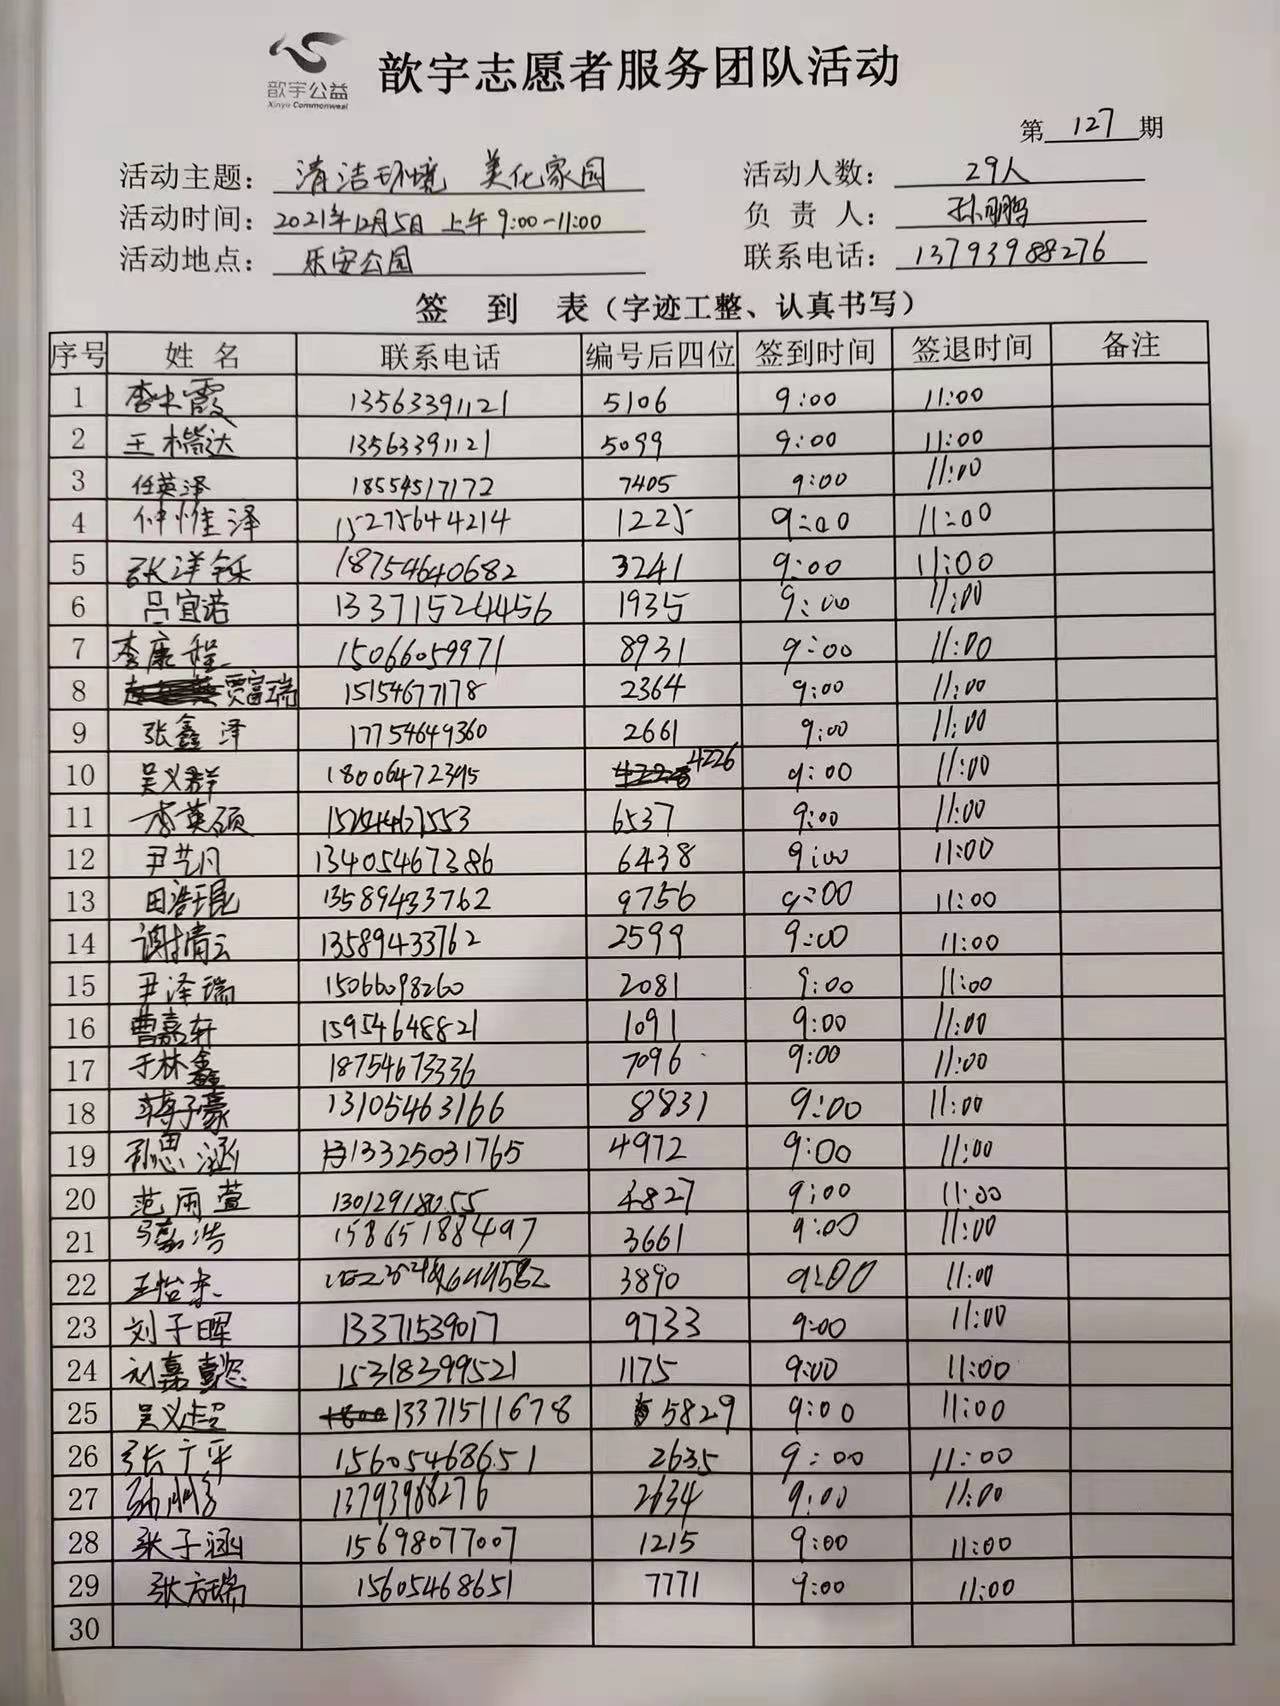 歆宇公益
Xinyu Commonweal
歆宇志愿者服务团队活动
第 127 期
活动主题: 清洁环境 美化家园 活动人数: 29人
活动时间: 2021年12月5日 上午9:00-11:00 负 责 人: 孙鹏
活动地点: 乐安公园 联系电话: 13793988276
签 到 表(字迹工整、认真书写)
序号 姓名 联系电话 编号后四位 签到时间 签退时间 备注
1 李霞 13563391121 5106 9:00 11:00
2 王楷达 13563391121 5099 9:00 11:00
3 任英泽 18554517172 7405 9:00 11:00
4 仲惟泽 15275644214 1225 9:00 11:00
5 张洋铄 18754640682 3241 9:00 11:00
6 吕宜诺 1935 9:00 11:00
7 李康程 15066059971 8931 9:00 11:00
8 贾富瑞 15154677178 2364 9:00 11:00
9 张鑫泽 17754649360 2661 9:00 11:00
10 吴义群 18006472395 4226 9:00 11:00
11 李英硕 6537 9:00 11:00
12 尹艺凡 13405467386 6438 9:00 11:00
13 田浩琨 13589433762 9756 9:00 11:00
14 谢婧云 13589433762 2599 9:00 11:00
15 尹泽瑞 15066098260 2081 9:00 11:00
16 曹嘉轩 15954648821 1091 9:00 11:00
17 于林鑫 18754673336 7096 9:00 11:00
18 子豪 13105463166 8831 9:00 11:00
19 思涵 13325031765 4972 9:00 11:00
20 范雨萱 13012918055 4827 9:00 11:00
21 浩 15865188497 3661 9:00 11:00
22 王怡 3890 9:00 11:00
23 刘子晖 13371539017 9733 9:00 11:00
24 刘嘉懿 15318399521 1175 9:00 11:00
25 吴义超 13371511678 5829 9:00 11:00
26 张广平 15605468651 2635 9:00 11:00
27 孙鹏 13793988276 2634 9:00 11:00
28 张子涵 15698077007 1215 9:00 11:00
29 张方瑞 15605468651 7771 9:00 11:00
30